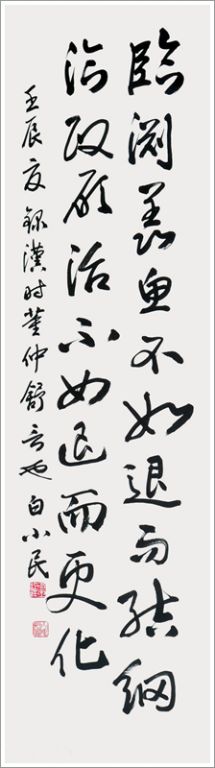 臨淵羨魚不如退而結網
臨政願治不如退而更化
壬辰夏錄漢时董仲舒言也白小民